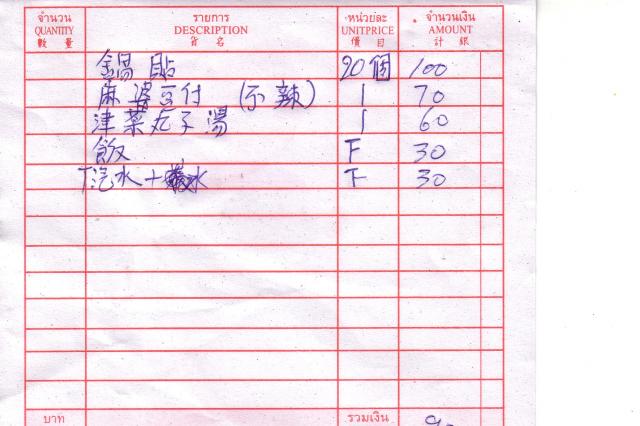 จำนวน รายการ หน่วยละ จำนวนเงิน
QUANTITY DESCRIPTION UNITPRICE AMOUNT
數 量 貨 名 價 目 計 銀
鍋 貼 20個 100
麻 婆 豆付 (不 辣) 1 70
津 菜 丸子 湯 1 60
飯 下 30
汽水 + 水 下 30
บาท รวมเงิน